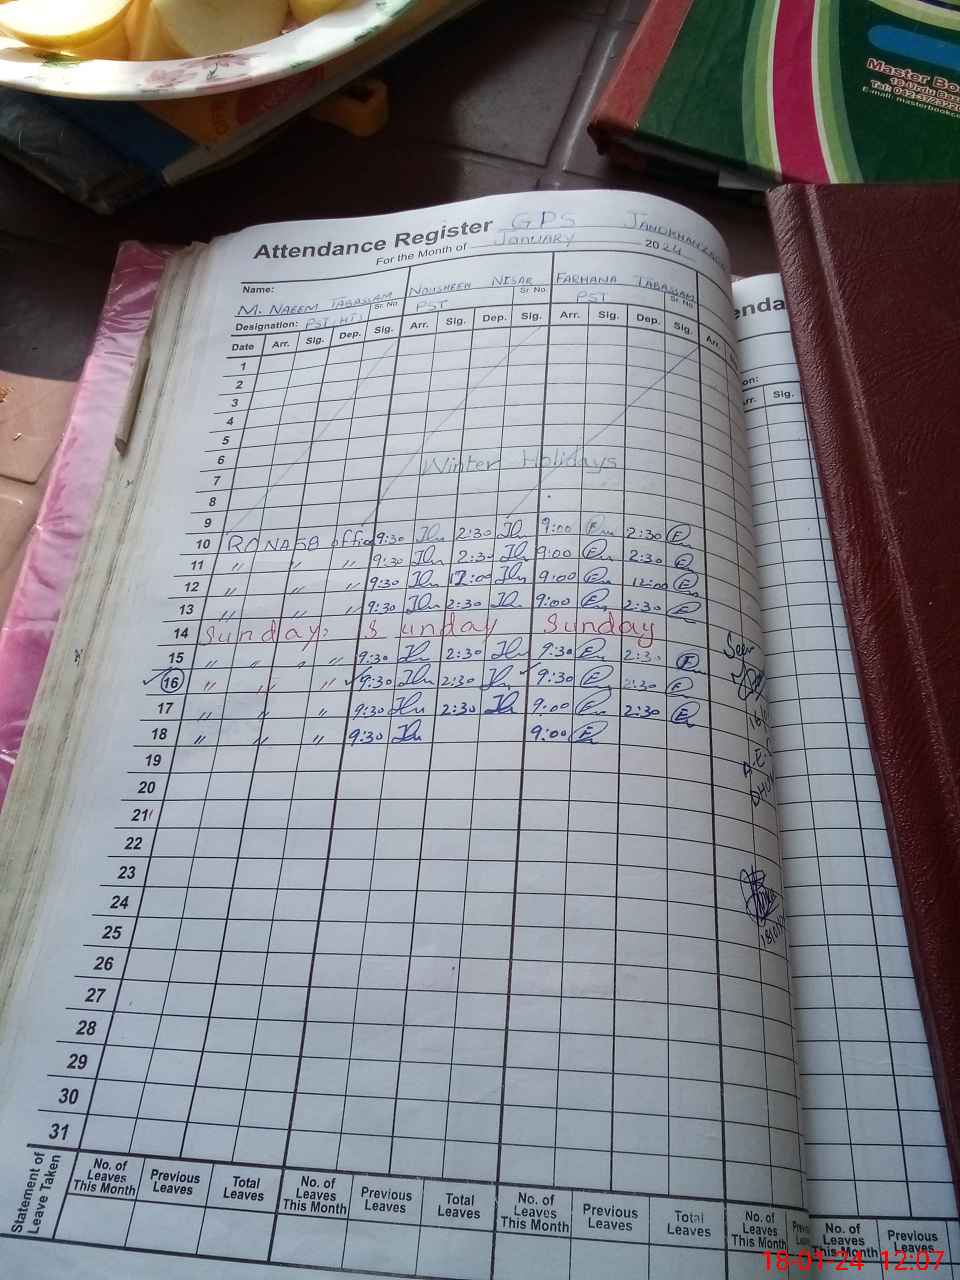 Master Bo
18-Urdu Baz
Tel: 042-3723220
E-mail: masterbookco
Attendance Register GPS
For the Month of January 2024
Name: M. NAEEM TABASSAM Sr. No NOUSHEEN NISAR Sr No FARHANA TABASSAM Sr. No
Designation: PST HTS PST PST
Date Arr. Sig. Dep. Sig. Arr. Sig. Dep. Sig. Arr. Sig. Dep. Sig. Arr.
1
2
3
4
5
6 Winter Holidays
7
8
9
10 office 9:30 2:30 9:00 2:30
11 " " " 9:30 2:30 9:00 2:30
12 " " " 9:30 12:00 9:00 12:00
13 " " " 9:30 2:30 9:00 2:30
14 Sunday. Sunday Sunday
15 " " " " 9:30 2:30 9:30 2:30
16 " " " 9:30 2:30 9:30 2:30
17 " " " 9:30 2:30 9:00 2:30
18 " " " 9:30 9:00
19
20
21
22
23
24
25
26
27
28
29
30
31
Seen
Statement of Leave Taken
No. of Leaves This Month Previous Leaves Total Leaves No. of Leaves This Month Previous Leaves Total Leaves No. of Leaves This Month Previous Leaves Total Leaves No. of Leaves This Month
enda
on:
rr. Sig.
No. of Leaves This Month Previous Leaves
18-01-24 12:07